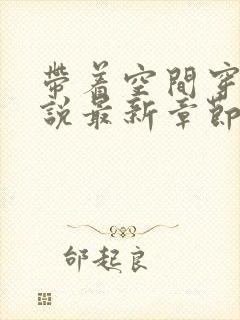 帶着空間穿
說最新章節
邰起良